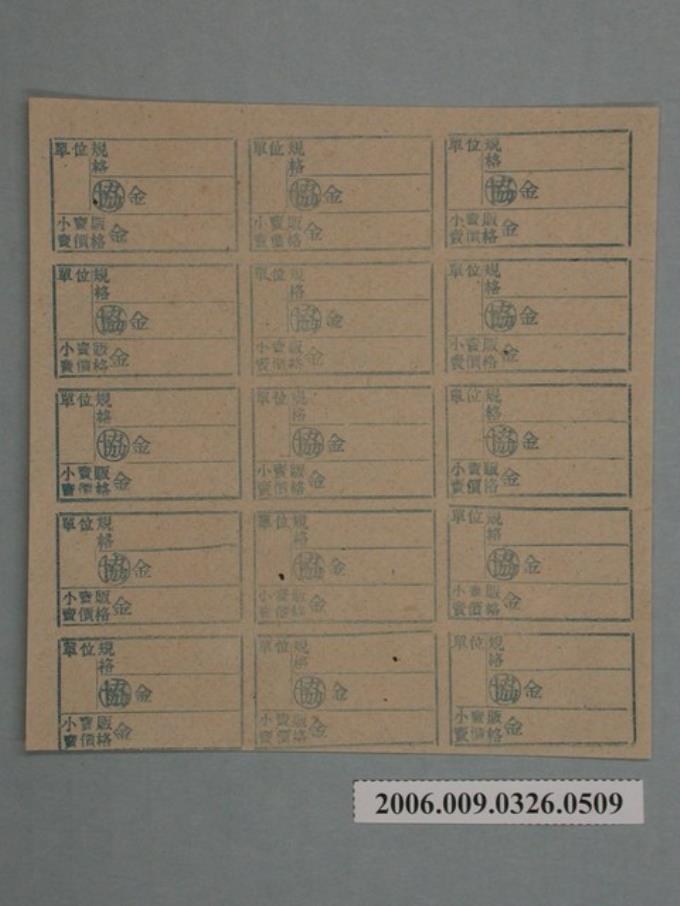 單位規
格
㊿協金
小賣販
賣價格金
單位規
格
協金
小賣販
賣價格金
單位規
格
協金
小賣販
賣價格金
單位規
格
協金
小賣販
賣價格金
單位規
格
協金
小賣販
賣價格金
單位規
格
協金
小賣販
賣價格金
單位規
格
協金
小賣販
賣價格金
單位規
格
協金
小賣販
賣價格金
單位規
格
協金
小賣販
賣價格金
單位規
格
協金
小賣販
賣價格金
單位規
格
協金
小賣販
賣價格金
單位規
格
協金
小賣販
賣價格金
單位規
格
協金
小賣販
賣價格金
單位規
格
協金
小賣販
賣價格金
單位規
格
協金
小賣販
賣價格金
2006.009.0326.0509